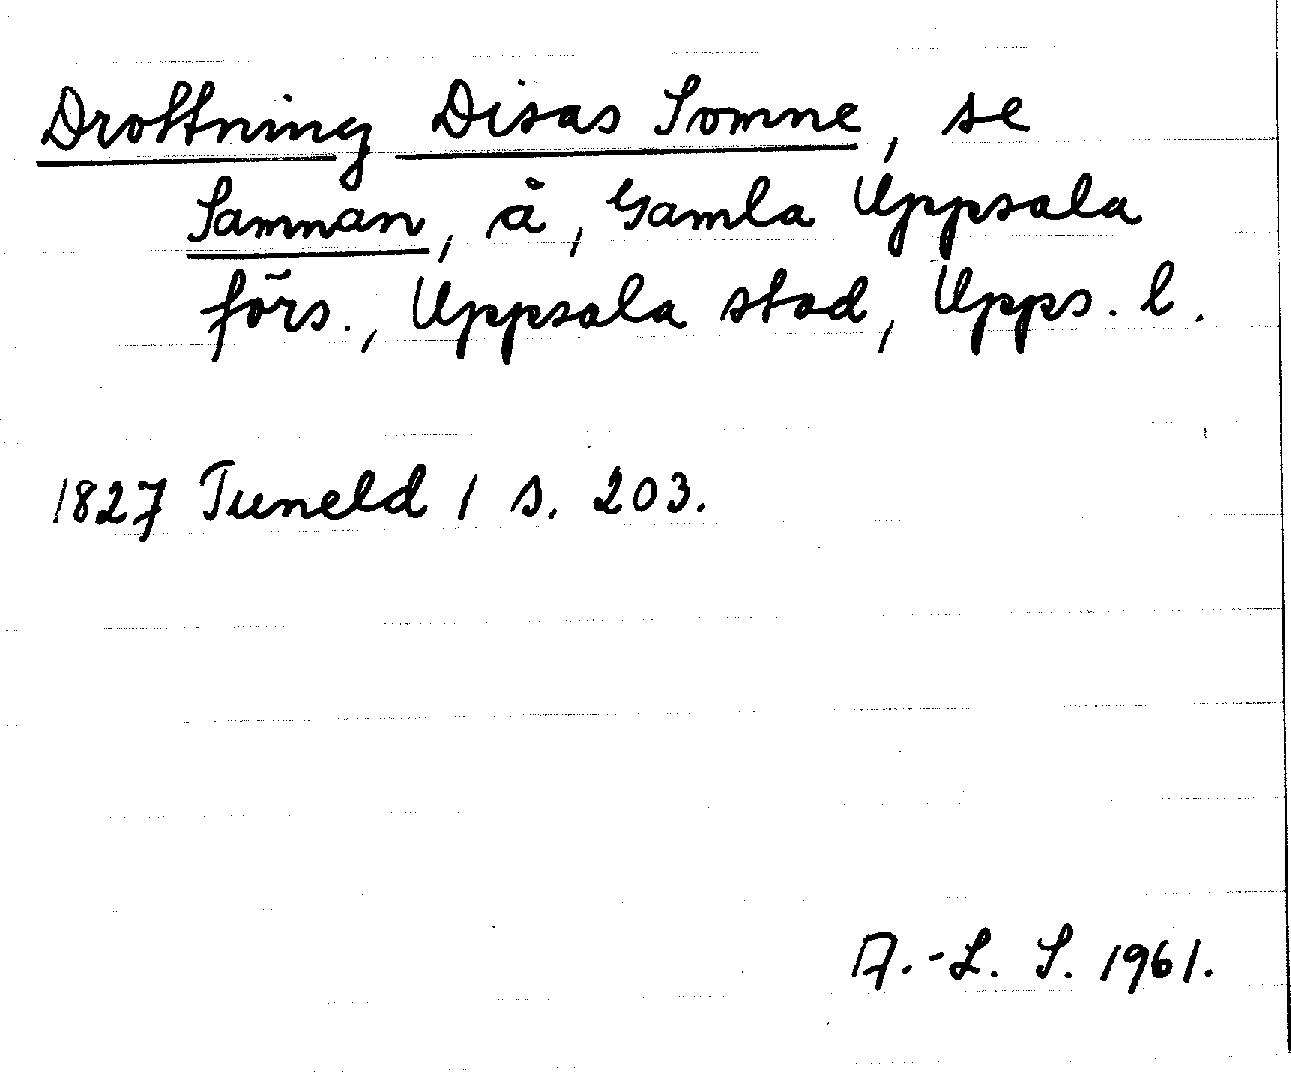 Drottning Disas Somne, se
Samnan, å, Gamla Uppsala
förs., Uppsala stad, Upps. l.
1827 Tuneld 1 s. 203.
A.-L. S. 1961.